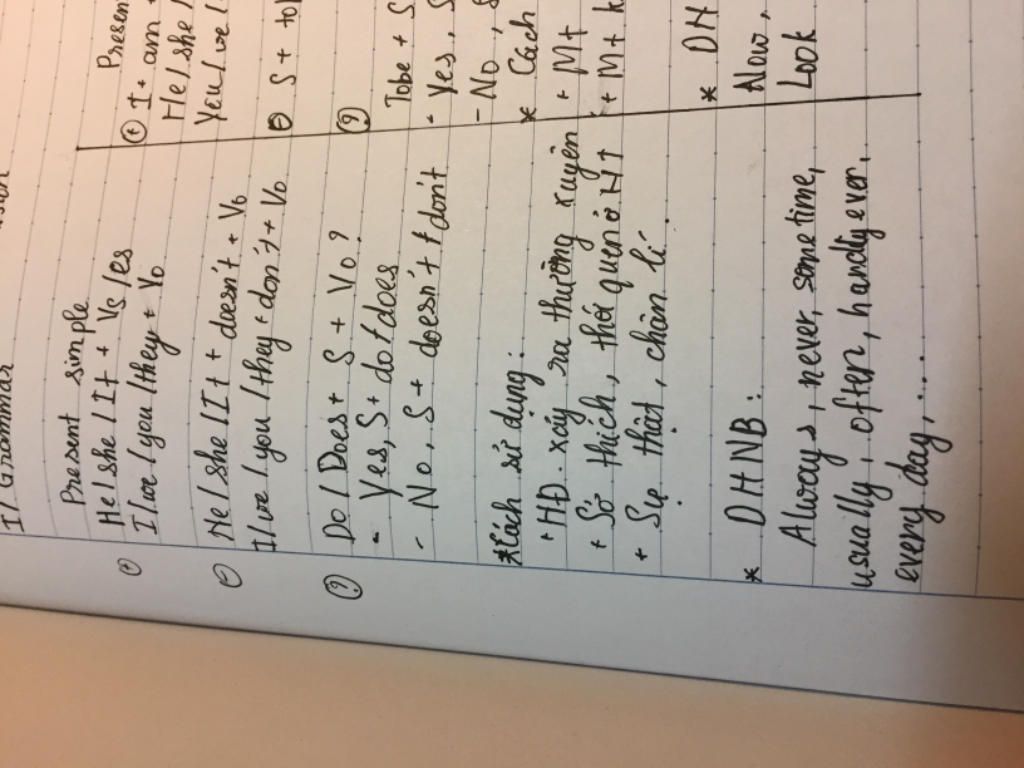 I/ Grammar
Present simple
(+) He/she/It + Vs/es
I/we/you/they + Vo
(-) He/she/It + doesn't + Vo
I/we/you/they + don't + Vo
(?) Do/Does + S + Vo?
- Yes, S + do/does
- No, S + doesn't/don't
* Cách sử dụng:
+ HĐ xảy ra thường xuyên
+ Sở thích, thói quen ở HT
+ Sự thật, chân lí.
* DHNB:
Always, never, sometime,
usually, often, handly ever,
every day, ...
Present
(+) I + am +
He/she/
You/we/
(-) S + tob
(?)
Tobe + S
- Yes, S
- No, S
* Cách
+ Mt
+ Mt k
* DH
Now,
Look